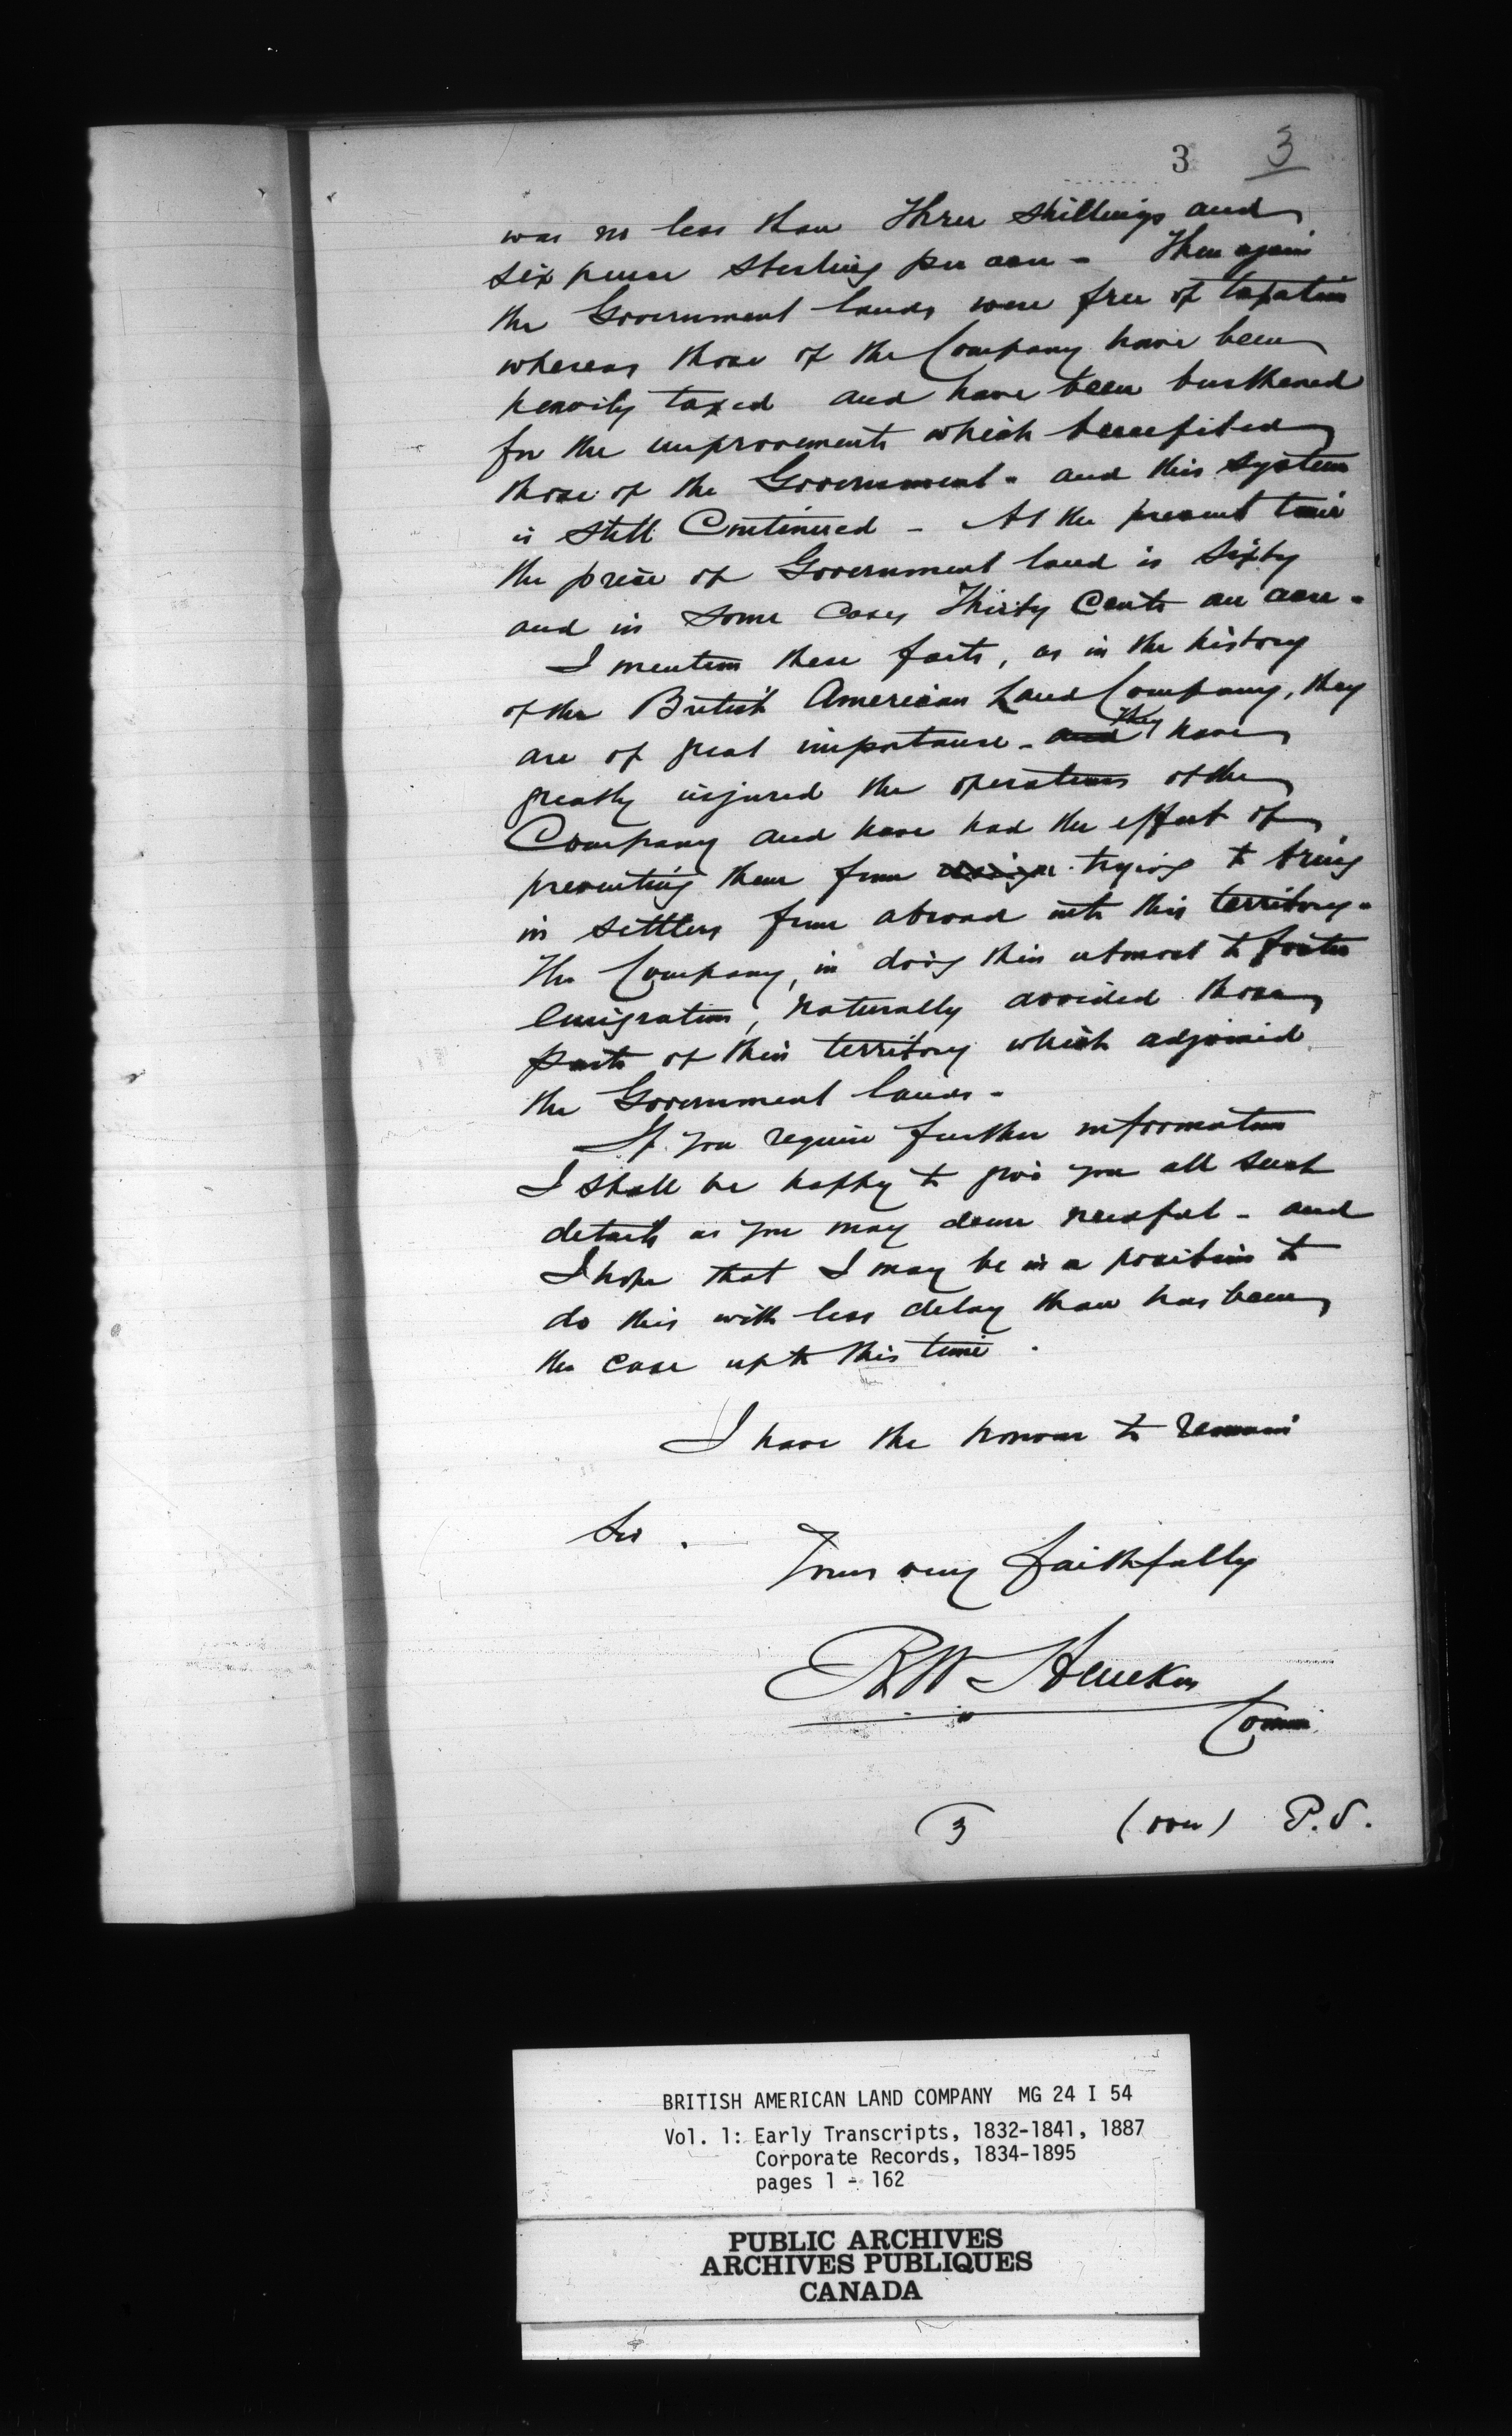 3 3
was no less than Three shillings and
six pence sterling per acre - Then again
the Government lands were free of taxation
whereas those of the Company have been
heavily taxed and have been burthened
for the improvements which benefited
those of the Government - and this system
is still Continued - At the present time
the price of Government land is Sixty
and in some cases Thirty Cents an acre -
I mention these facts, as in the history
of the British American Land Company, they
are of great importance - and they have
greatly injured the operations of the
Company and have had the effect of
preventing them from trying to bring
in settlers from abroad into this territory -
The Company, in doing their utmost to foster
Emigration, naturally avoided those
parts of their territory which adjoined
the Government lands -
If you require further information
I shall be happy to give you all such
details as you may deem needful - and
I hope that I may be in a position to
do this with less delay than has been
the case up to this time.
I have the honour to remain
Sir.
Yours very faithfully
RW Heneker
Commr
3 (over) P.S.
BRITISH AMERICAN LAND COMPANY MG 24 I 54
Vol. 1: Early Transcripts, 1832-1841, 1887
Corporate Records, 1834-1895
pages 1 - 162
PUBLIC ARCHIVES
ARCHIVES PUBLIQUES
CANADA